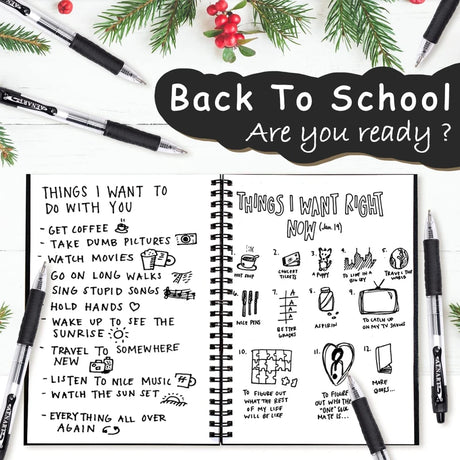 Back To School
Are you ready ?
THINGS I WANT TO
DO WITH YOU
- GET COFFEE
- TAKE DUMB PICTURES
- WATCH MOVIES
GO ON LONG WALKS
SING STUPID SONGS
HOLD HANDS
- WAKE UP TO SEE THE
SUNRISE
- TRAVEL TO SOMEWHERE
NEW
- LISTEN TO NICE MUSIC
- WATCH THE SUN SET
- EVERYTHING ALL OVER
AGAIN
THINGS I WANT RIGHT
NOW (Jan. 19)
1. HOT SOUP
2. CONCERT
TICKETS
3. A PUPPY
4. TO LIVE IN A
BIG CITY
5. TRAVEL THE
WORLD
6. NICE PENS
7. BETTER
GRADES
8. ASPIRIN
9. TO CATCH UP
ON MY TV SHOWS
10. TO FIGURE OUT
WHAT THE REST
OF MY LIFE
WILL BE LIKE
11. TO FIGURE
OUT WHO THE
"ONE" SOUL
MATE IS...
12. MORE
BOOKS...